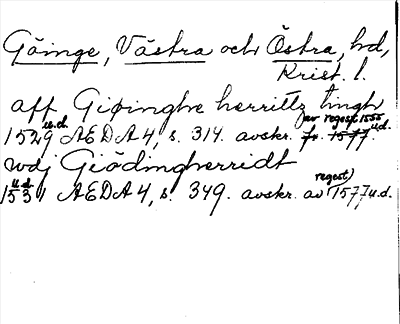 Göinge, Västra och Östra, hd,
Krist. l.
aff Giøinghe herritz tingh
1529 u.d. AEDA 4, s. 314. avskr. av regest 1555 fr. 1577 u.d.
wdj Giödingherridt
1531 u.d. AEDA 4, s. 349. avskr. av regest) 1577 u.d.